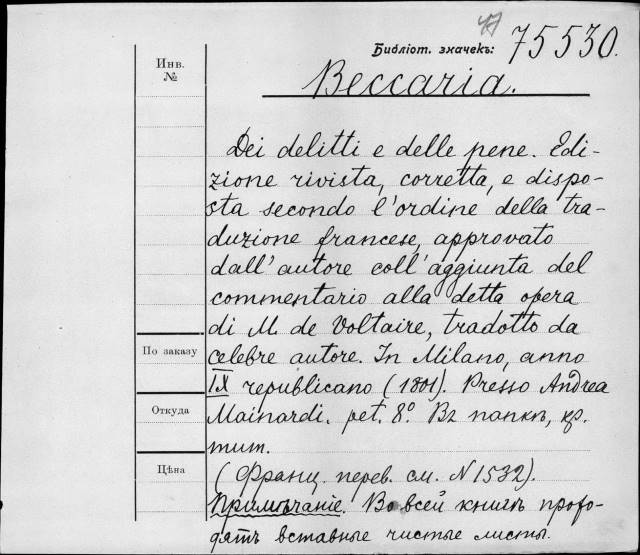 47
Библіот. значекъ: 75530.
Инв.
№
Beccaria.
Dei delitti e delle pene. Edi-
zione rivista, corretta, e dispo-
sta secondo l'ordine della tra-
duzione francese, approvato
dall'autore coll'aggiunta del
commentario alla detta opera
di M. de Voltaire, tradotto da
По заказу
celebre autore. In Milano, anno
IX republicano (1801). Presso Andrea
Откуда
Mainardi. pet. 8º. Въ папкѣ, кр.
тит.
Цѣна
(Франц. перев. см. N 1532).
Примѣчаніе. Во всей книгѣ прохо-
дятъ вставные чистые листы.